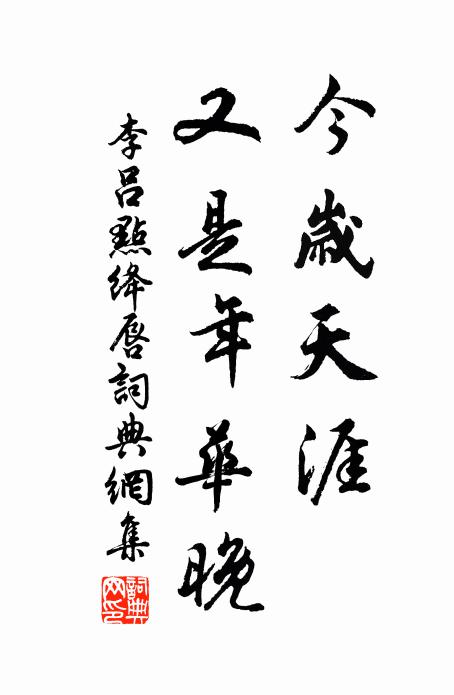 今歲天涯
又是年華晚
李呂點絳唇詞典網集
詞典網印